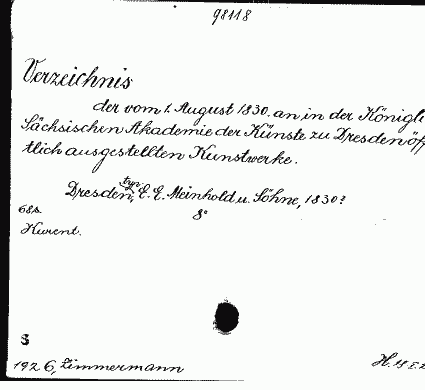 98118
Verzeichnis
der vom 1. August 1830. an in der Königli
Sächsischen Akademie der Künste zu Dresden öff
tlich ausgestellten Kunstwerke.
typ.
Dresden, C. C. Meinhold u. Söhne, 1830?
68s. 8°
Kurent.
S
1926, Zimmermann